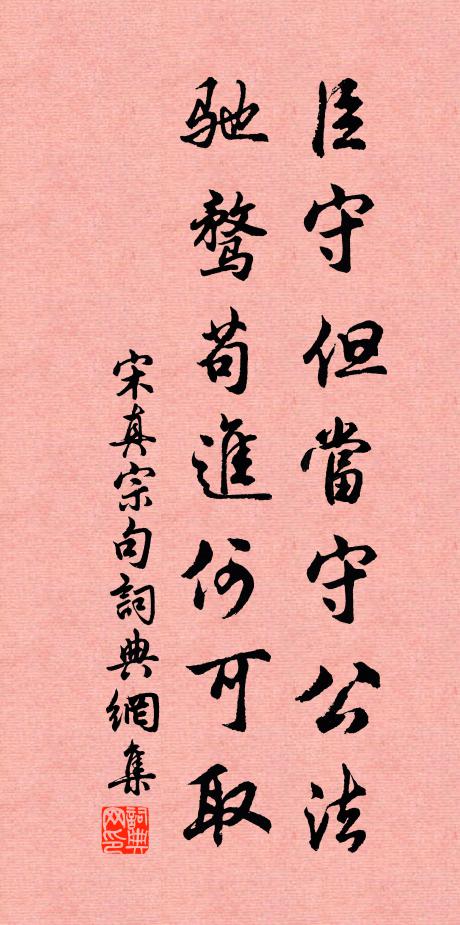 臣守但當守公法
馳騖苟進何可取
宋真宗句詞典網集
詞典网印